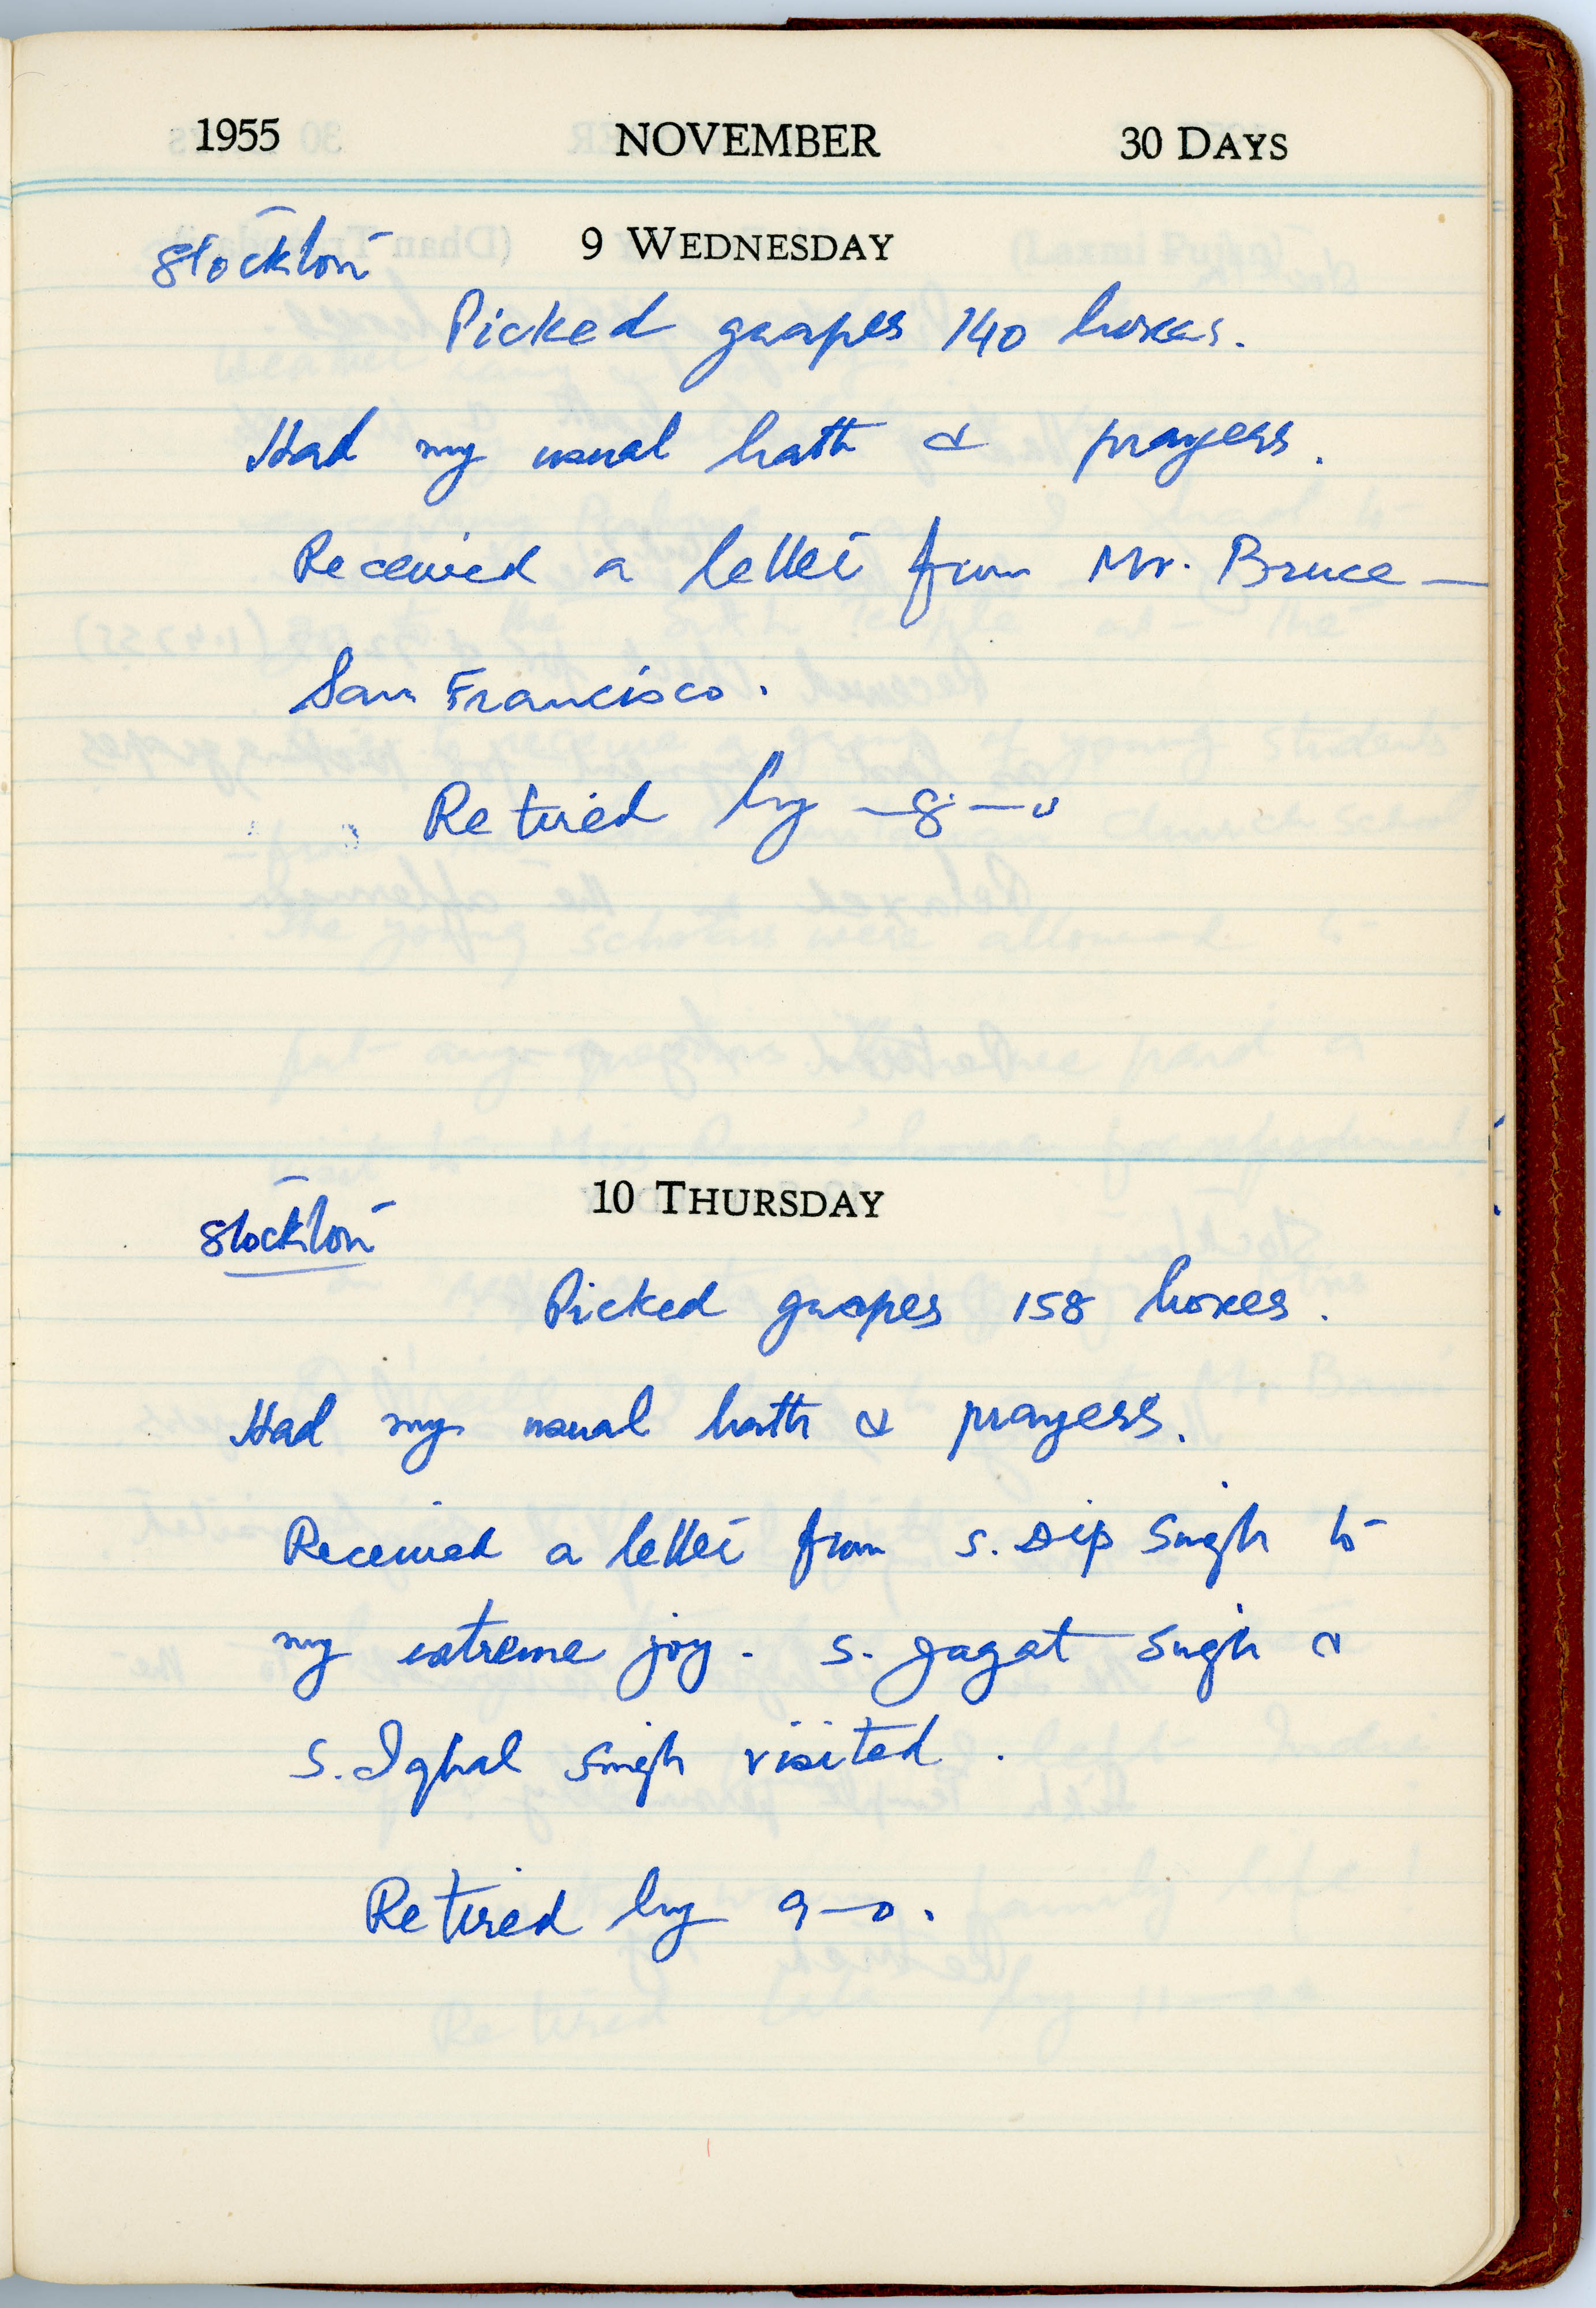 1955 NOVEMBER 30 DAYS
9 WEDNESDAY
Stockton
Picked grapes 140 boxes.
Had my usual bath & prayers.
Received a letter from Mr. Bruce —
San Francisco.
Retired by —8—0
10 THURSDAY
Stockton
Picked grapes 158 boxes.
Had my usual bath & prayers.
Received a letter from S. Dip Singh to
my extreme joy. S. Jagat Singh &
S. Iqbal Singh visited.
Retired by 9—0.